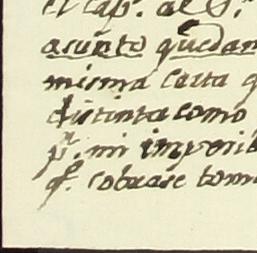 el cap.ⁿ al S.ʳ
asunto quedan
misma carta q
distinta como
p.ʳ mi imperi
q.ᵉ cobrase tom